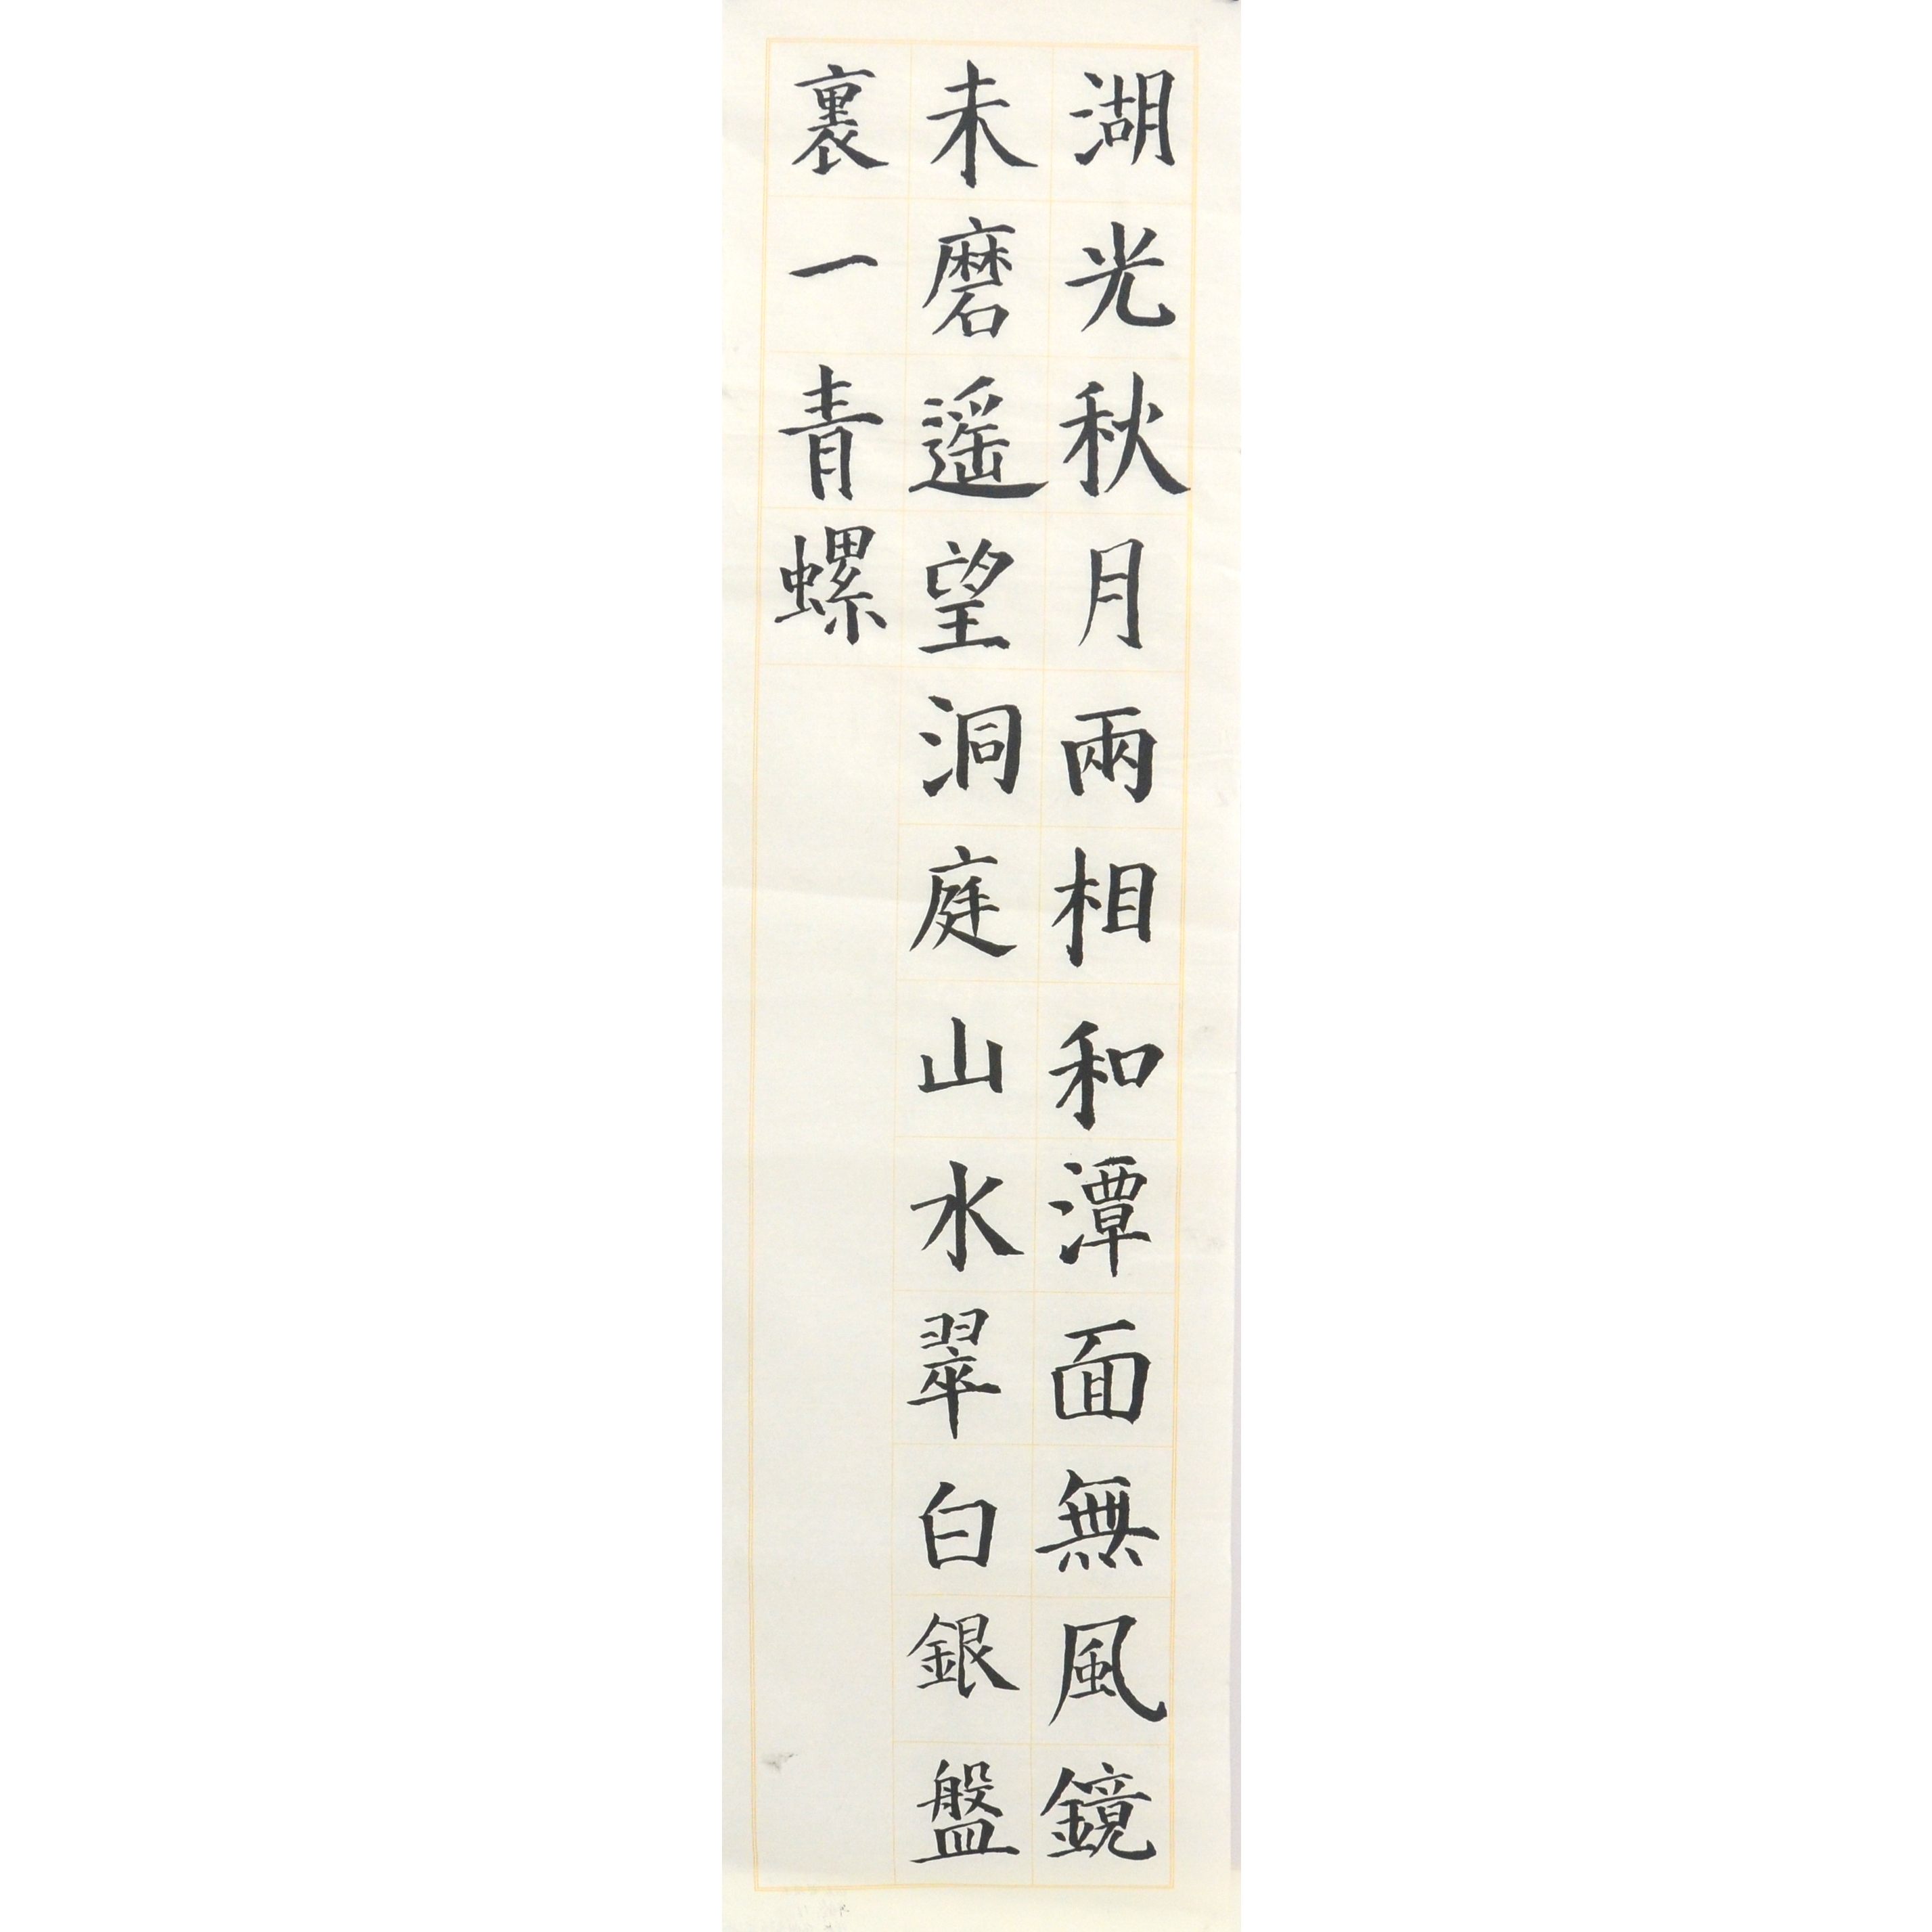 湖光秋月兩相和潭面無風鏡
未磨遥望洞庭山水翠白銀盤
裏一青螺